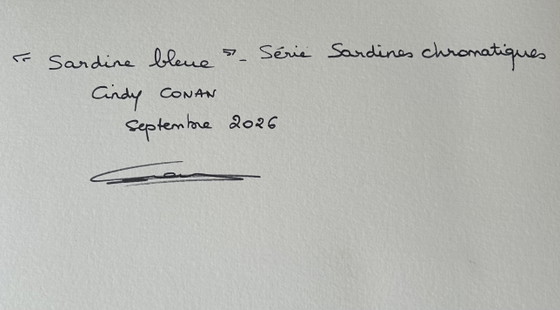 « Sardine bleue » - Série Sardines chromatiques
Cindy CONAN
Septembre 2026